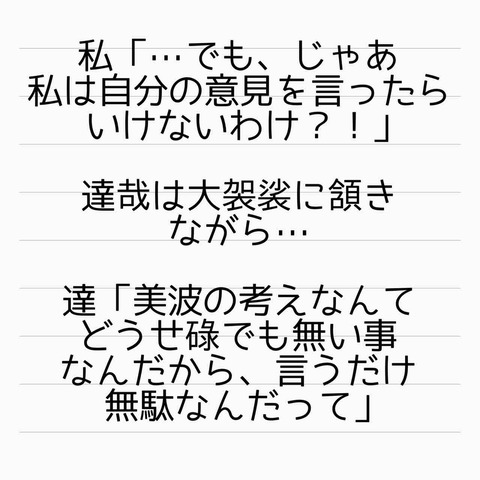 私「…でも、じゃあ
私は自分の意見を言ったら
いけないわけ？！」
達哉は大袈裟に頷き
ながら…
達「美波の考えなんて
どうせ碌でも無い事
なんだから、言うだけ
無駄なんだって」